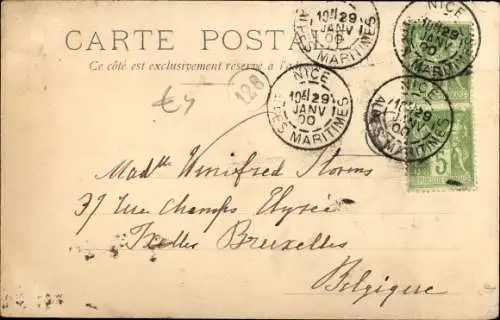 CARTE POSTALE
Ce côté est exclusivement réservé à l'ad
NICE
10H 29
JANV
00
ALPES MARITIMES
NICE
10H 29
JANV
00
ALPES MARITIMES
NICE
29
JANV
00
ALPES MARITIMES
NICE
29
JANV
00
ALPES MARITIMES
128
5
Madlle Winifred Storms
37 rue Champs Elysée
Ixelles Bruxelles
Belgique